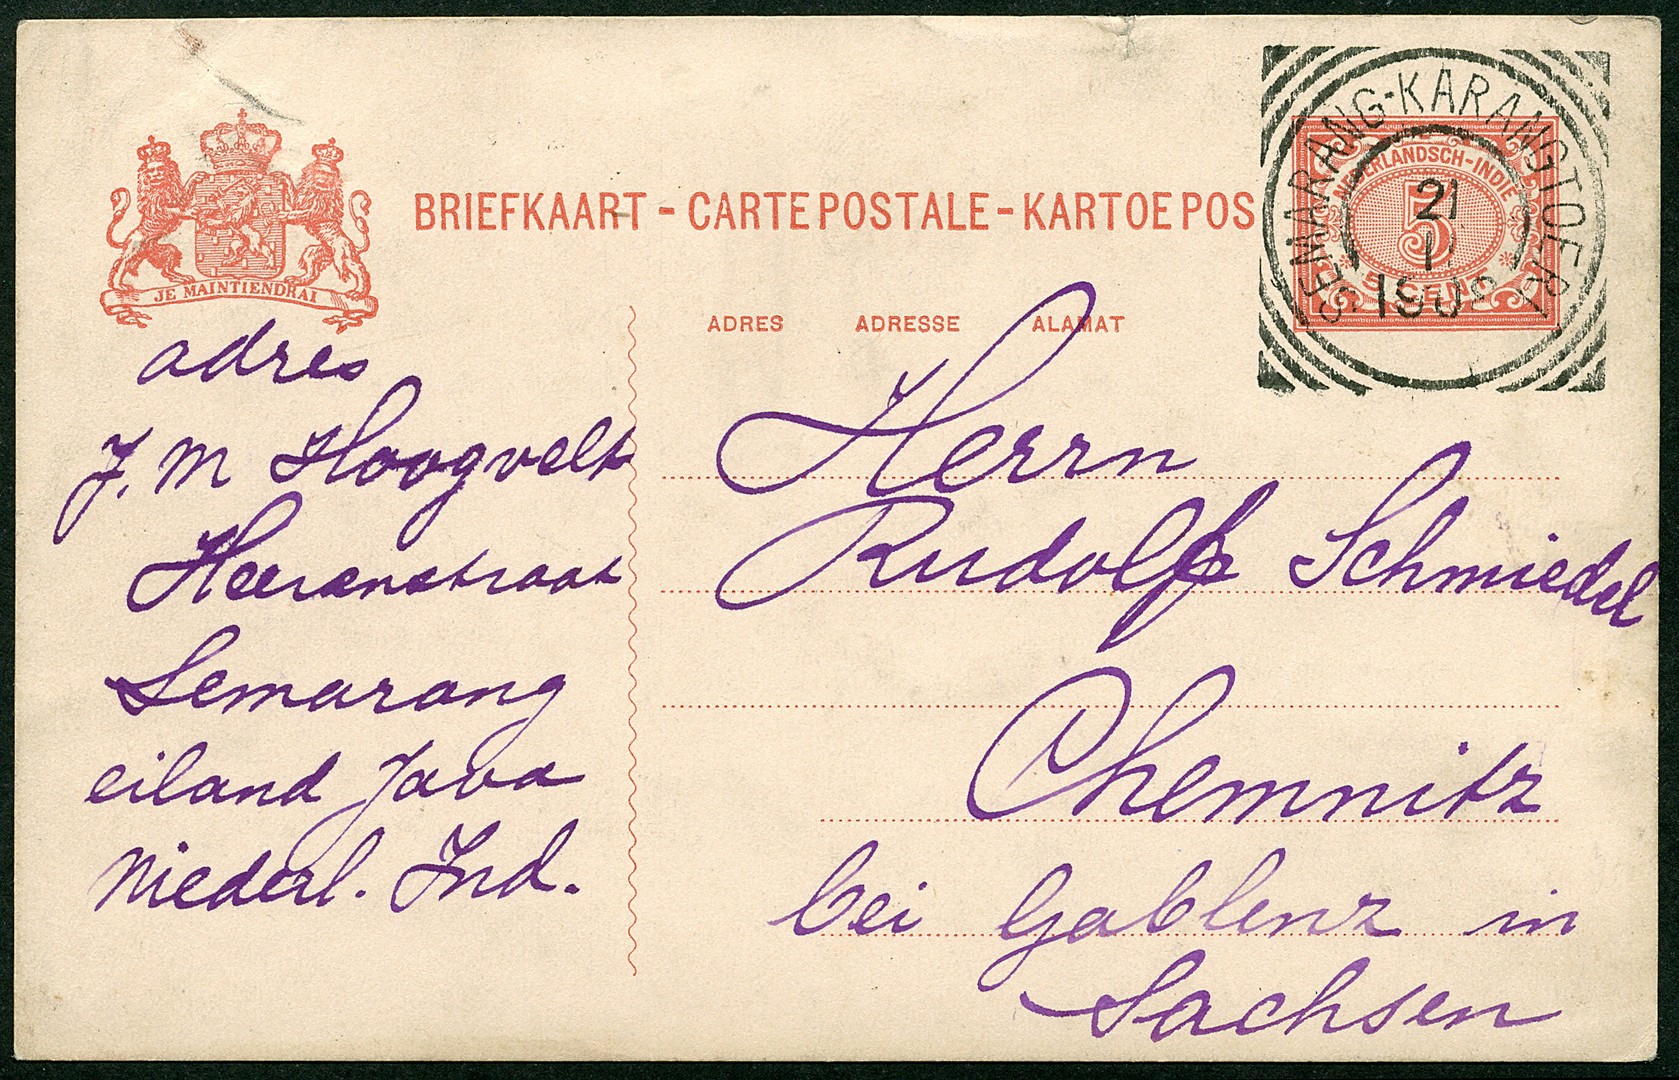 JE MAINTIENDRAI
BRIEFKAART - CARTE POSTALE - KARTOE POS
SEMARANG-KARANGTOERI
21
1902
NEDERLANDSCH-INDIE
5
5 CENT
ADRES ADRESSE ALAMAT
adres
J. M Hoogvelt
Heerenstraat
Semarang
eiland Java
Niederl. Ind.
Herrn
Rudolf Schmiedel
Chemnitz
bei Gablenz in
Sachsen